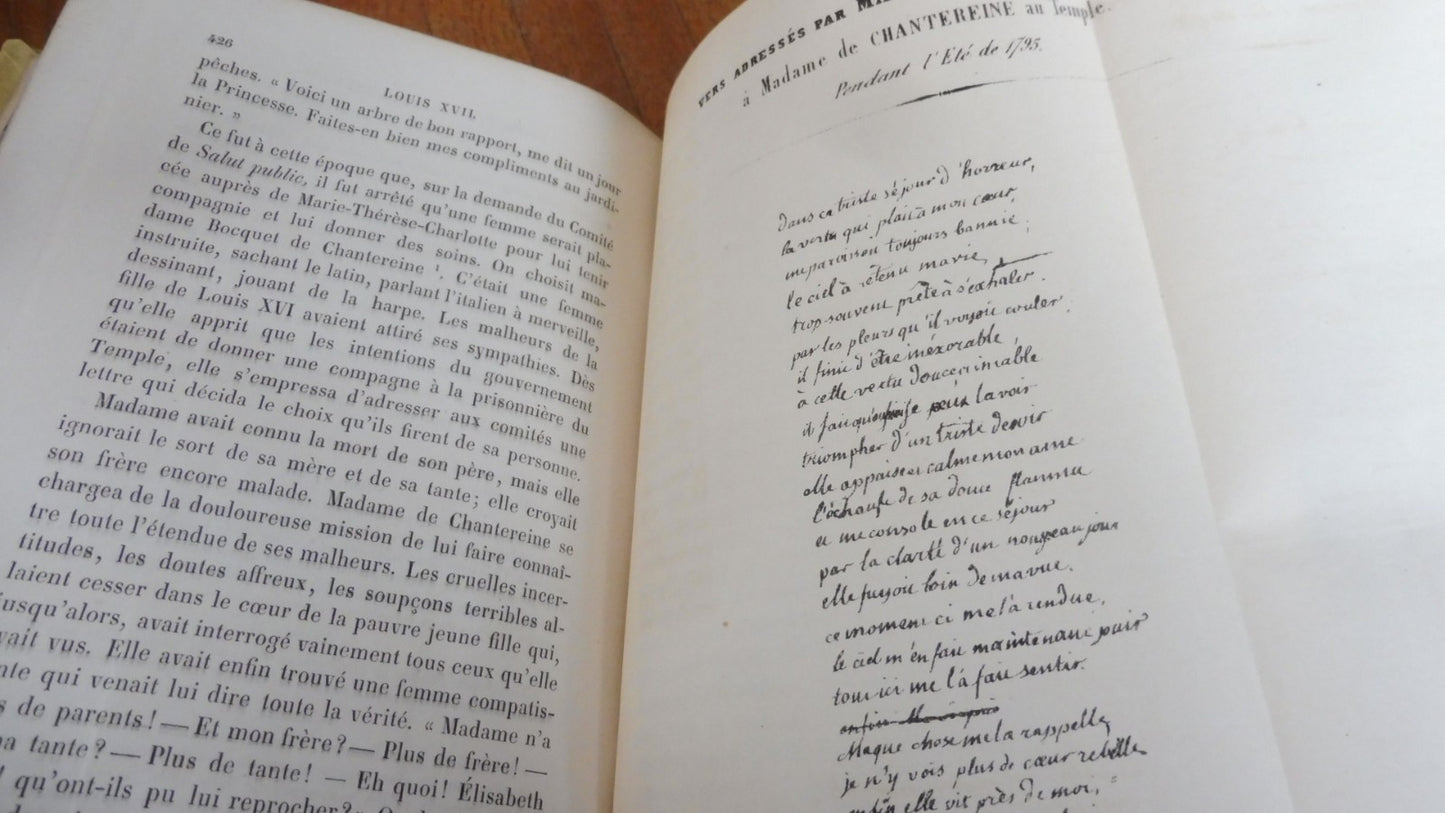 426
LOUIS XVII.
pêches. « Voici un arbre de bon rapport, me dit un jour
la Princesse. Faites-en bien mes compliments au jardi-
nier. »
Ce fut à cette époque que, sur la demande du Comité
de Salut public, il fut arrêté qu'une femme serait pla-
cée auprès de Marie-Thérèse-Charlotte pour lui tenir
compagnie et lui donner des soins. On choisit ma-
dame Bocquet de Chantereine ¹. C'était une femme
instruite, sachant le latin, parlant l'italien à merveille,
dessinant, jouant de la harpe. Les malheurs de la
fille de Louis XVI avaient attiré ses sympathies. Dès
qu'elle apprit que les intentions du gouvernement
étaient de donner une compagne à la prisonnière du
Temple, elle s'empressa d'adresser aux comités une
lettre qui décida le choix qu'ils firent de sa personne.
Madame avait connu la mort de son père, mais elle
ignorait le sort de sa mère et de sa tante; elle croyait
son frère encore malade. Madame de Chantereine se
chargea de la douloureuse mission de lui faire connaî-
tre toute l'étendue de ses malheurs. Les cruelles incer-
titudes, les doutes affreux, les soupçons terribles al-
laient cesser dans le cœur de la pauvre jeune fille qui,
jusqu'alors, avait interrogé vainement tous ceux qu'elle
vait vus. Elle avait enfin trouvé une femme compatis-
nte qui venait lui dire toute la vérité. « Madame n'a
s de parents! — Et mon frère? — Plus de frère! —
a tante? — Plus de tante! — Eh quoi! Élisabeth
! qu'ont-ils pu lui reprocher?
VERS ADRESSÉS PAR
à Madame de CHANTEREINE au Temple.
Pendant l'Eté de 1795.
dans ca triste séjour d'horreur,
la vertu qui plait à mon cœur,
me paroisoit toujours bannie;
le ciel à retenu ma vie,
trop souvent prête à s'exhaler.
par les pleurs qu'il voyoit couler.
il finit d'être inéxorable,
à cette vertu douce et aimable
il fait que je peux la voir
triompher d'un triste devoir
elle appaise et calme mon ame
l'échaufe de sa douce flamme
et me console en ce séjour
par la clarté d'un nouveau jour
elle fuyoit loin de ma vue.
ce moment ci me l'a rendue,
le ciel m'en fait maintenant jouir
tout ici me l'a fait sentir.
chaque chose me la rappelle
je n'y vois plus de cœur rebelle
enfin elle vit près de moi,